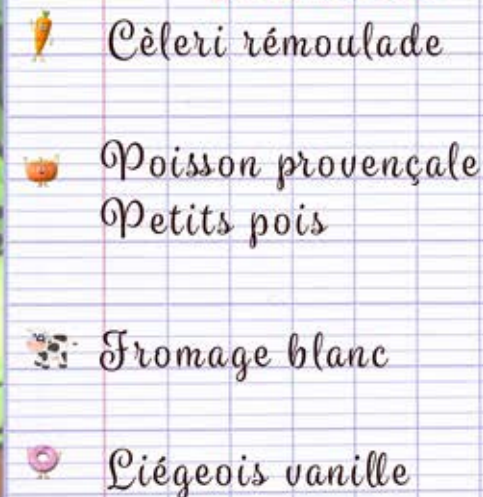 Cèleri rémoulade
Poisson provençale
Petits pois
Fromage blanc
Liégeois vanille